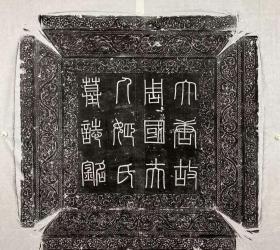 大唐故
周國夫
人姬氏
墓誌銘